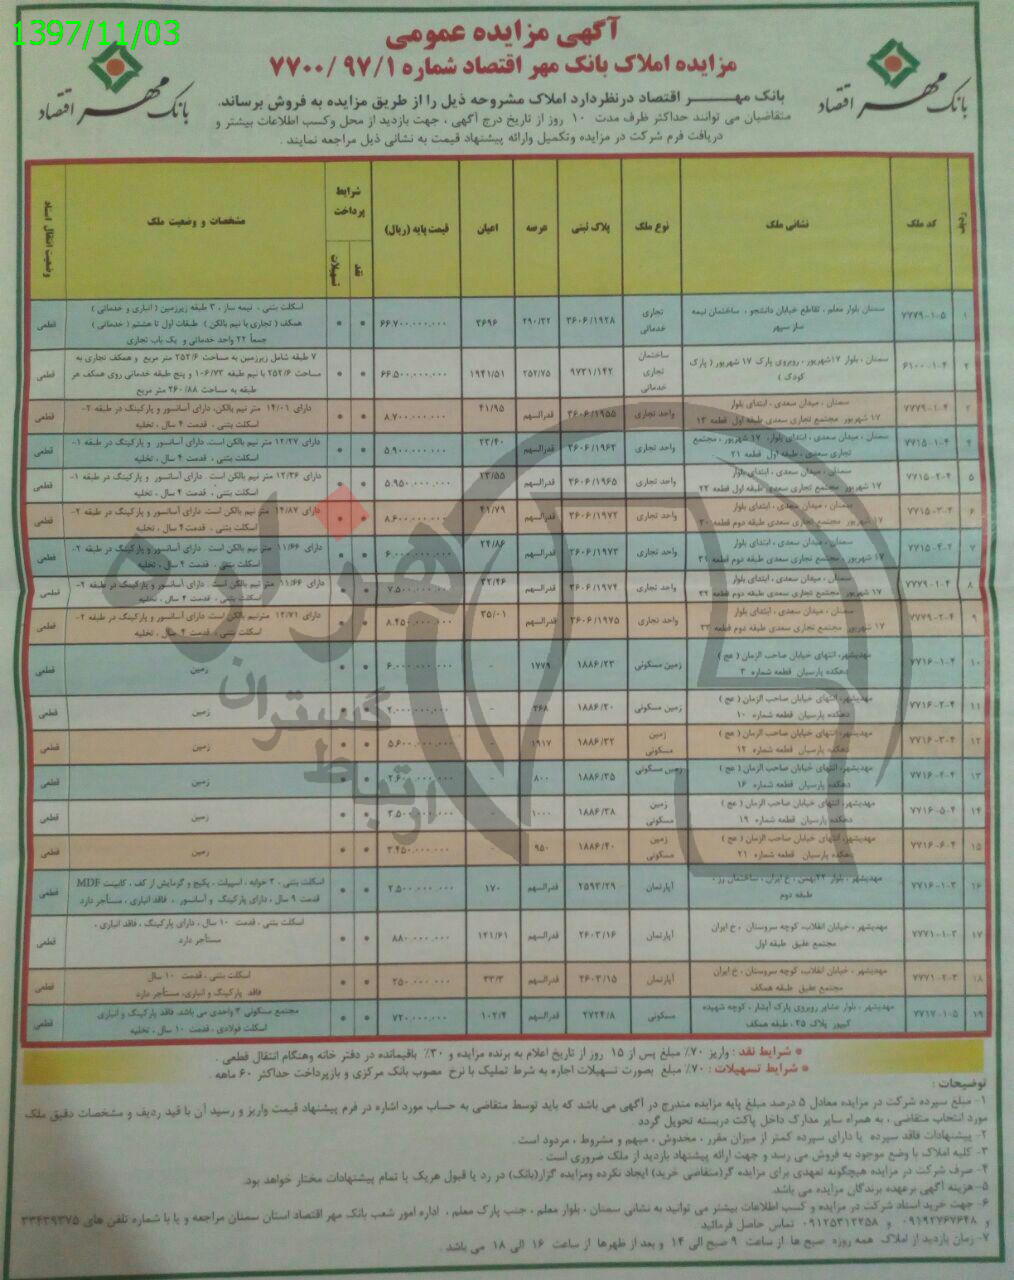 1397/11/03
آگهی مزایده عمومی
مزایده املاک بانک مهر اقتصاد شماره ۹۷/۱ /۷۷۰۰
بانک مهر اقتصاد
بانک مهر اقتصاد
بانک مهـــــر اقتصاد درنظردارد املاک مشروحه ذیل را از طریق مزایده به فروش برساند.
متقاضیان می توانند حداکثر ظرف مدت ۱۰ روز از تاریخ درج آگهی ، جهت بازدید از محل وکسب اطلاعات بیشتر و
دریافت فرم شرکت در مزایده وتکمیل وارائه پیشنهاد قیمت به نشانی ذیل مراجعه نمایند .
ردیف کد ملک نشانی ملک نوع ملک پلاک ثبتی عرصه اعیان قیمت پایه (ریال) شرایط پرداخت نقد تسهیلات مشخصات و وضعیت ملک وضعیت انتقال اسناد
۱ ۷۷۷۹-۱-۵ سمنان بلوار معلم ، تقاطع خیابان دانشجو ، ساختمان نیمه ساز سپهر تجاری خدماتی ۳۶۰۶/۱۹۲۸ ۲۹۰/۳۲ ۳۶۹۶ ۶۶.۷۰۰.۰۰۰.۰۰۰ • • اسکلت بتنی ، نیمه ساز ، ۳ طبقه زیرزمین ( انباری و خدماتی ) همکف ( تجاری با نیم بالکن ) طبقات اول تا هشتم ( خدماتی ) جمعاً ۲۲ واحد خدماتی و یک باب تجاری قطعی
۲ ۶۱۰۰-۱-۴ سمنان ، بلوار ۱۷شهریور ، روبروی پارک ۱۷ شهریور ( پارک کودک ) ساختمان تجاری خدماتی ۹۷۳۱/۱۴۲ ۲۵۲/۷۵ ۱۹۴۱/۵۱ ۶۶.۵۰۰.۰۰۰.۰۰۰ • • ۷ طبقه شامل زیرزمین به مساحت ۲۵۲/۶ متر مربع و همکف تجاری به مساحت ۲۵۲/۶ با نیم طبقه ۱۰۶/۷۳ و پنج طبقه خدماتی روی همکف هر طبقه به مساحت ۲۶۰/۸۸ متر مربع قطعی
۳ ۷۷۷۹-۱-۴ سمنان ، میدان سعدی ، ابتدای بلوار ۱۷ شهریور مجتمع تجاری سعدی طبقه اول قطعه ۱۳ واحد تجاری ۳۶۰۶/۱۹۵۵ قدرالسهم ۴۱/۹۵ ۸.۷۰۰.۰۰۰.۰۰۰ • • دارای ۱۴/۰۱ متر نیم بالکن، دارای آسانسور و پارکینگ در طبقه ۲- اسکلت بتنی ، قدمت ۴ سال ، تخلیه قطعی
۴ ۷۷۱۵-۱-۴ سمنان ، میدان سعدی ، ابتدای بلوار، ۱۷ شهریور ، مجتمع تجاری سعدی ، طبقه اول قطعه ۲۱ واحد تجاری ۳۶۰۶/۱۹۶۳ قدرالسهم ۲۳/۴۰ ۵.۹۰۰.۰۰۰.۰۰۰ • • دارای ۱۲/۲۷ متر نیم بالکن است. دارای آسانسور و پارکینگ در طبقه ۱- اسکلت بتنی ، قدمت ۴ سال ، تخلیه قطعی
۵ ۷۷۱۵-۲-۴ سمنان ، میدان سعدی ، ابتدای بلوار ۱۷ شهریور، مجتمع تجاری سعدی طبقه اول قطعه ۲۲ واحد تجاری ۳۶۰۶/۱۹۶۵ قدرالسهم ۲۳/۵۵ ۵.۹۵۰.۰۰۰.۰۰۰ • • دارای ۱۲/۳۶ متر نیم بالکن است . دارای آسانسور و پارکینگ در طبقه ۱- اسکلت بتنی ، قدمت ۴ سال ، تخلیه قطعی
۶ ۷۷۱۵-۳-۴ سمنان ، میدان سعدی ، ابتدای بلوار ۱۷ شهریور، مجتمع تجاری سعدی طبقه دوم قطعه ۳۰ واحد تجاری ۳۶۰۶/۱۹۷۲ قدرالسهم ۴۱/۷۹ ۸.۶۰۰.۰۰۰.۰۰۰ • • دارای ۱۴/۸۷ متر نیم بالکن است. دارای آسانسور و پارکینگ در طبقه ۲- اسکلت بتنی ، قدمت ۴ سال ، تخلیه قطعی
۷ ۷۷۱۵-۴-۴ سمنان ، میدان سعدی ، ابتدای بلوار ۱۷ شهریور ، مجتمع تجاری سعدی طبقه دوم قطعه ۳۱ واحد تجاری ۳۶۰۶/۱۹۷۳ قدرالسهم ۲۴/۸۶ ۶.۰۰۰.۰۰۰.۰۰۰ • • دارای ۱۱/۶۶ متر نیم بالکن است. دارای آسانسور و پارکینگ در طبقه ۲- اسکلت بتنی ، قدمت ۴ سال ، تخلیه قطعی
۸ ۷۷۷۹-۱-۴ سمنان، میدان سعدی ، ابتدای بلوار ۱۷ شهریور مجتمع تجاری سعدی طبقه دوم قطعه ۳۲ واحد تجاری ۳۶۰۶/۱۹۷۴ قدرالسهم ۳۲/۴۶ ۷.۵۰۰.۰۰۰.۰۰۰ • • دارای ۱۱/۶۶ متر نیم بالکن است . دارای آسانسور و پارکینگ در طبقه ۲- اسکلت بتنی ، قدمت ۴ سال ، تخلیه قطعی
۹ ۷۷۷۹-۲-۴ سمنان ، میدان سعدی ، ابتدای بلوار ۱۷ شهریور مجتمع تجاری سعدی طبقه دوم قطعه ۳۳ واحد تجاری ۳۶۰۶/۱۹۷۵ قدرالسهم ۳۵/۰۱ ۸.۴۵۰.۰۰۰.۰۰۰ • • دارای ۱۲/۷۱ مترنیم بالکن است. دارای آسانسور و پارکینگ در طبقه ۲- اسکلت بتنی ، قدمت ۴ سال ، تخلیه قطعی
۱۰ ۷۷۱۶-۱-۴ مهدیشهر، انتهای خیابان صاحب الزمان ( عج ) دهکده پارسیان قطعه شماره ۳ زمین مسکونی ۱۸۸۶/۲۳ ۱۷۷۹ - ۶.۰۰۰.۰۰۰.۰۰۰ • • زمین قطعی
۱۱ ۷۷۱۶-۲-۴ مهدیشهر، انتهای خیابان صاحب الزمان ( عج ) دهکده پارسیان قطعه شماره ۱۰ زمین مسکونی ۱۸۸۶/۳۰ ۳۶۸ - ۲.۰۰۰.۰۰۰.۰۰۰ • • زمین قطعی
۱۲ ۷۷۱۶-۳-۴ مهدیشهر، انتهای خیابان صاحب الزمان ( عج ) دهکده پارسیان قطعه شماره ۱۲ زمین مسکونی ۱۸۸۶/۳۲ ۱۹۱۷ - ۵.۶۰۰.۰۰۰.۰۰۰ • • زمین قطعی
۱۳ ۷۷۱۶-۴-۴ مهدیشهر، انتهای خیابان صاحب الزمان ( عج ) دهکده پارسیان قطعه شماره ۱۶ زمین مسکونی ۱۸۸۶/۳۵ ۸۰۰ - ۲.۶۰۰.۰۰۰.۰۰۰ • • زمین قطعی
۱۴ ۷۷۱۶-۵-۴ مهدیشهر، انتهای خیابان صاحب الزمان ( عج ) دهکده پارسیان قطعه شماره ۱۹ زمین مسکونی ۱۸۸۶/۳۸ ۱۰۰۰ - ۳.۵۰۰.۰۰۰.۰۰۰ • • زمین قطعی
۱۵ ۷۷۱۶-۶-۴ مهدیشهر، انتهای خیابان صاحب الزمان ( عج ) دهکده پارسیان قطعه شماره ۲۱ زمین مسکونی ۱۸۸۶/۴۰ ۹۵۰ - ۳.۴۵۰.۰۰۰.۰۰۰ • • زمین قطعی
۱۶ ۷۷۱۶-۱-۳ مهدیشهر ، بلوار ۲۲بهمن ، خ ایران ، ساختمان رز ، طبقه دوم آپارتمان ۲۵۹۳/۲۹ قدرالسهم ۱۷۰ ۲.۵۰۰.۰۰۰.۰۰۰ • • اسکلت بتنی ، ۲ خوابه ، اسپیلت ، پکیج و گرمایش از کف ، کابینت MDF قدمت ۹ سال ، دارای پارکینگ و آسانسور ، فاقد انباری ، مستأجر دارد قطعی
۱۷ ۷۷۷۱-۱-۳ مهدیشهر ، خیابان انقلاب، کوچه سروستان ، خ ایران مجتمع عقیق طبقه اول آپارتمان ۲۶۰۳/۱۶ قدرالسهم ۱۴۱/۶۱ ۸۸۰.۰۰۰.۰۰۰ • • اسکلت بتنی ، قدمت ۱۰ سال ، دارای پارکینگ ، فاقد انباری ، مستأجر دارد قطعی
۱۸ ۷۷۷۱-۲-۳ مهدیشهر ، خیابان انقلاب، کوچه سروستان ، خ ایران مجتمع عقیق طبقه همکف آپارتمان ۲۶۰۳/۱۵ قدرالسهم ۳۳/۳ ۲۵۰.۰۰۰.۰۰۰ • • اسکلت بتنی ، قدمت ۱۰ سال فاقد پارکینگ و انباری، مستأجر دارد قطعی
۱۹ ۷۷۱۷-۱-۵ مهدیشهر ، بلوار عشایر روبروی پارک آبشار ، کوچه شهیده کیپور پلاک ۲۵ ، طبقه همکف مسکونی ۲۷۲۴/۸ قدرالسهم ۱۰۲/۴ ۷۲۰.۰۰۰.۰۰۰ • • مجتمع مسکونی ۴ واحدی می باشد. فاقد پارکینگ و انباری اسکلت فولادی ، قدمت ۱۰ سال ، تخلیه قطعی
• شرایط نقد : واریز ۷۰٪ مبلغ پس از ۱۵ روز از تاریخ اعلام به برنده مزایده و ۳۰٪ باقیمانده در دفتر خانه وهنگام انتقال قطعی .
• شرایط تسهیلات : ۷۰٪ مبلغ بصورت تسهیلات اجاره به شرط تملیک با نرخ مصوب بانک مرکزی و بازپرداخت حداکثر ۶۰ ماهه .
توضیحات :
۱- مبلغ سپرده شرکت در مزایده معادل ۵ درصد مبلغ پایه مزایده مندرج در آگهی می باشد که باید توسط متقاضی به حساب مورد اشاره در فرم پیشنهاد قیمت واریز و رسید آن با قید ردیف و مشخصات دقیق ملک
مورد انتخاب متقاضی ، به همراه سایر مدارک داخل پاکت دربسته تحویل گردد .
۲- پیشنهادات فاقد سپرده یا دارای سپرده کمتر از میزان مقرر ، مخدوش ، مبهم و مشروط ، مردود است .
۳- کلیه املاک با وضع موجود به فروش می رسد و جهت ارائه پیشنهاد بازدید از ملک ضروری است .
۴- صرف شرکت در مزایده هیچگونه تعهدی برای مزایده گر(متقاضی خرید) ایجاد نکرده ومزایده گزار(بانک) در رد یا قبول هریک یا تمام پیشنهادات مختار خواهد بود.
۵-هزینه آگهی برعهده برندگان مزایده می باشد.
۶- جهت خرید اسناد شرکت در مزایده و کسب اطلاعات بیشتر می توانید به نشانی سمنان ، بلوار معلم ، جنب پارک معلم ، اداره امور شعب بانک مهر اقتصاد استان سمنان مراجعه و یا با شماره تلفن های ۳۳۴۳۹۳۷۵
و ۰۹۱۹۲۷۶۷۶۴۸ و ۰۹۱۲۵۳۱۲۲۵۸ تماس حاصل فرمائید
۷- زمان بازدید از املاک همه روزه صبح ها از ساعت ۹ صبح الی ۱۴ و بعد از ظهرها از ساعت ۱۶ الی ۱۸ می باشد .
هزاره
گستران
ارتباط